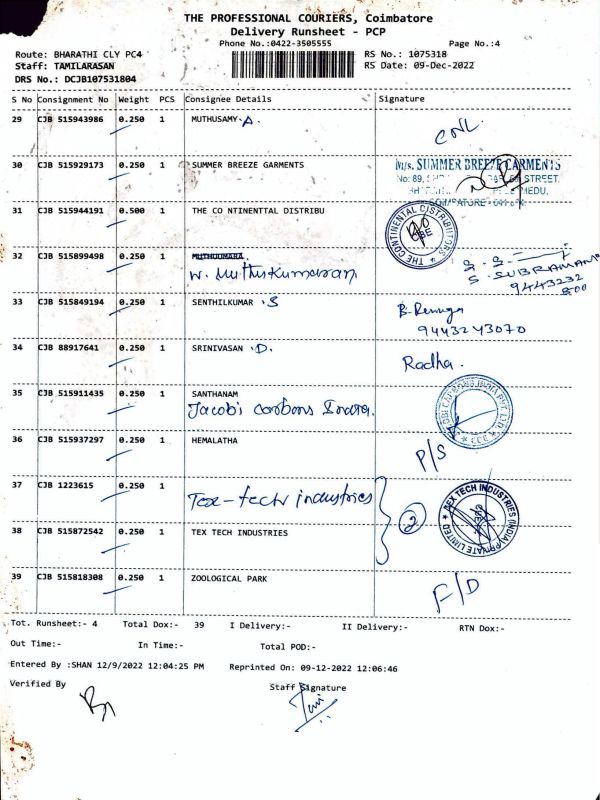 THE PROFESSIONAL COURIERS, Coimbatore
Delivery Runsheet - PCP
Phone No.:0422-3505555
Page No.:4
Route: BHARATHI CLY PC4
RS No.: 1075318
Staff: TAMILARASAN
RS Date: 09-Dec-2022
DRS No.: DCJB107531804
S No Consignment No Weight PCS Consignee Details Signature
29 CJB 515943986 0.250 1 MUTHUSAMY .A.
CNL
30 CJB 515929173 0.250 1 SUMMER BREEZE GARMENTS
M/s. SUMMER BREEZE GARMENTS
No: 89, STREET,
MEDU,
COIMBATORE
31 CJB 515944191 0.500 1 THE CO NTINENTTAL DISTRIBU
THE CONTINENTAL DISTRIBUTORS
CBE
32 CJB 515899498 0.250 1 MUTHUUMARA
W. Muthukumaran
S. SUBRAMANI
9443232
800
33 CJB 515849194 0.250 1 SENTHILKUMAR .S
B. Renuga
9443243070
34 CJB 88917641 0.250 1 SRINIVASAN .D.
Radha.
35 CJB 515911435 0.250 1 SANTHANAM
Jacobi carbons India.
36 CJB 515937297 0.250 1 HEMALATHA
P/S
37 CJB 1223615 0.250 1 Tex-tech industries
2
TEX TECH INDUSTRIES (INDIA) PRIVATE LIMITED
38 CJB 515872542 0.250 1 TEX TECH INDUSTRIES
39 CJB 515818308 0.250 1 ZOOLOGICAL PARK
F/D
Tot. Runsheet:- 4 Total Dox:- 39 I Delivery:- II Delivery:- RTN Dox:-
Out Time:- In Time:- Total POD:-
Entered By :SHAN 12/9/2022 12:04:25 PM Reprinted On: 09-12-2022 12:06:46
Verified By Staff Signature